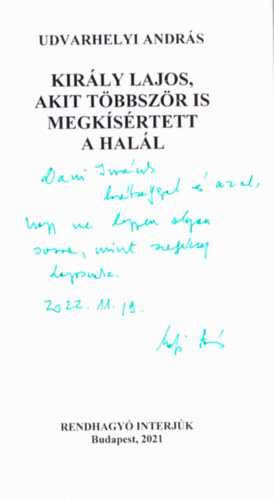 UDVARHELYI ANDRÁS
KIRÁLY LAJOS,
AKIT TÖBBSZÖR IS
MEGKÍSÉRTETT
A HALÁL
Dani Imrének
barátsággal és azzal,
hogy ne legyen olyan
sorsa, mint szegény
Lajosnak.
2022. 11. 19.
RENDHAGYÓ INTERJÚK
Budapest, 2021